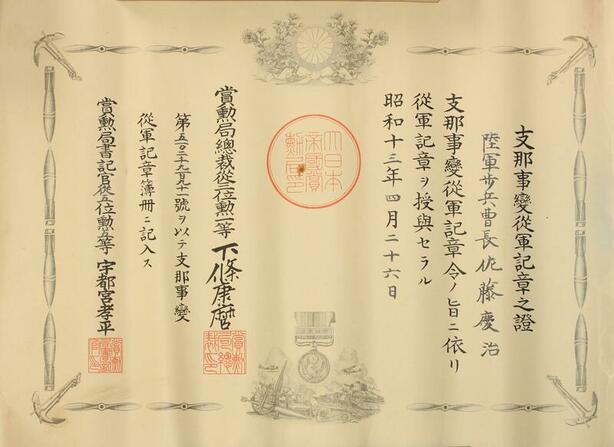 支那事變從軍記章之證
陸軍步兵曹長佐藤慶治
支那事變從軍記章令ノ旨ニ依リ
從軍記章ヲ授與セラル
昭和十三年四月二十六日
大日本
帝國賞
勲局印
賞勲局總裁從三位勲一等下條康麿
號ヲ以テ支那事變
從軍記章簿冊ニ記入ス
賞勲局書記官從五位勲五等宇都宮孝平